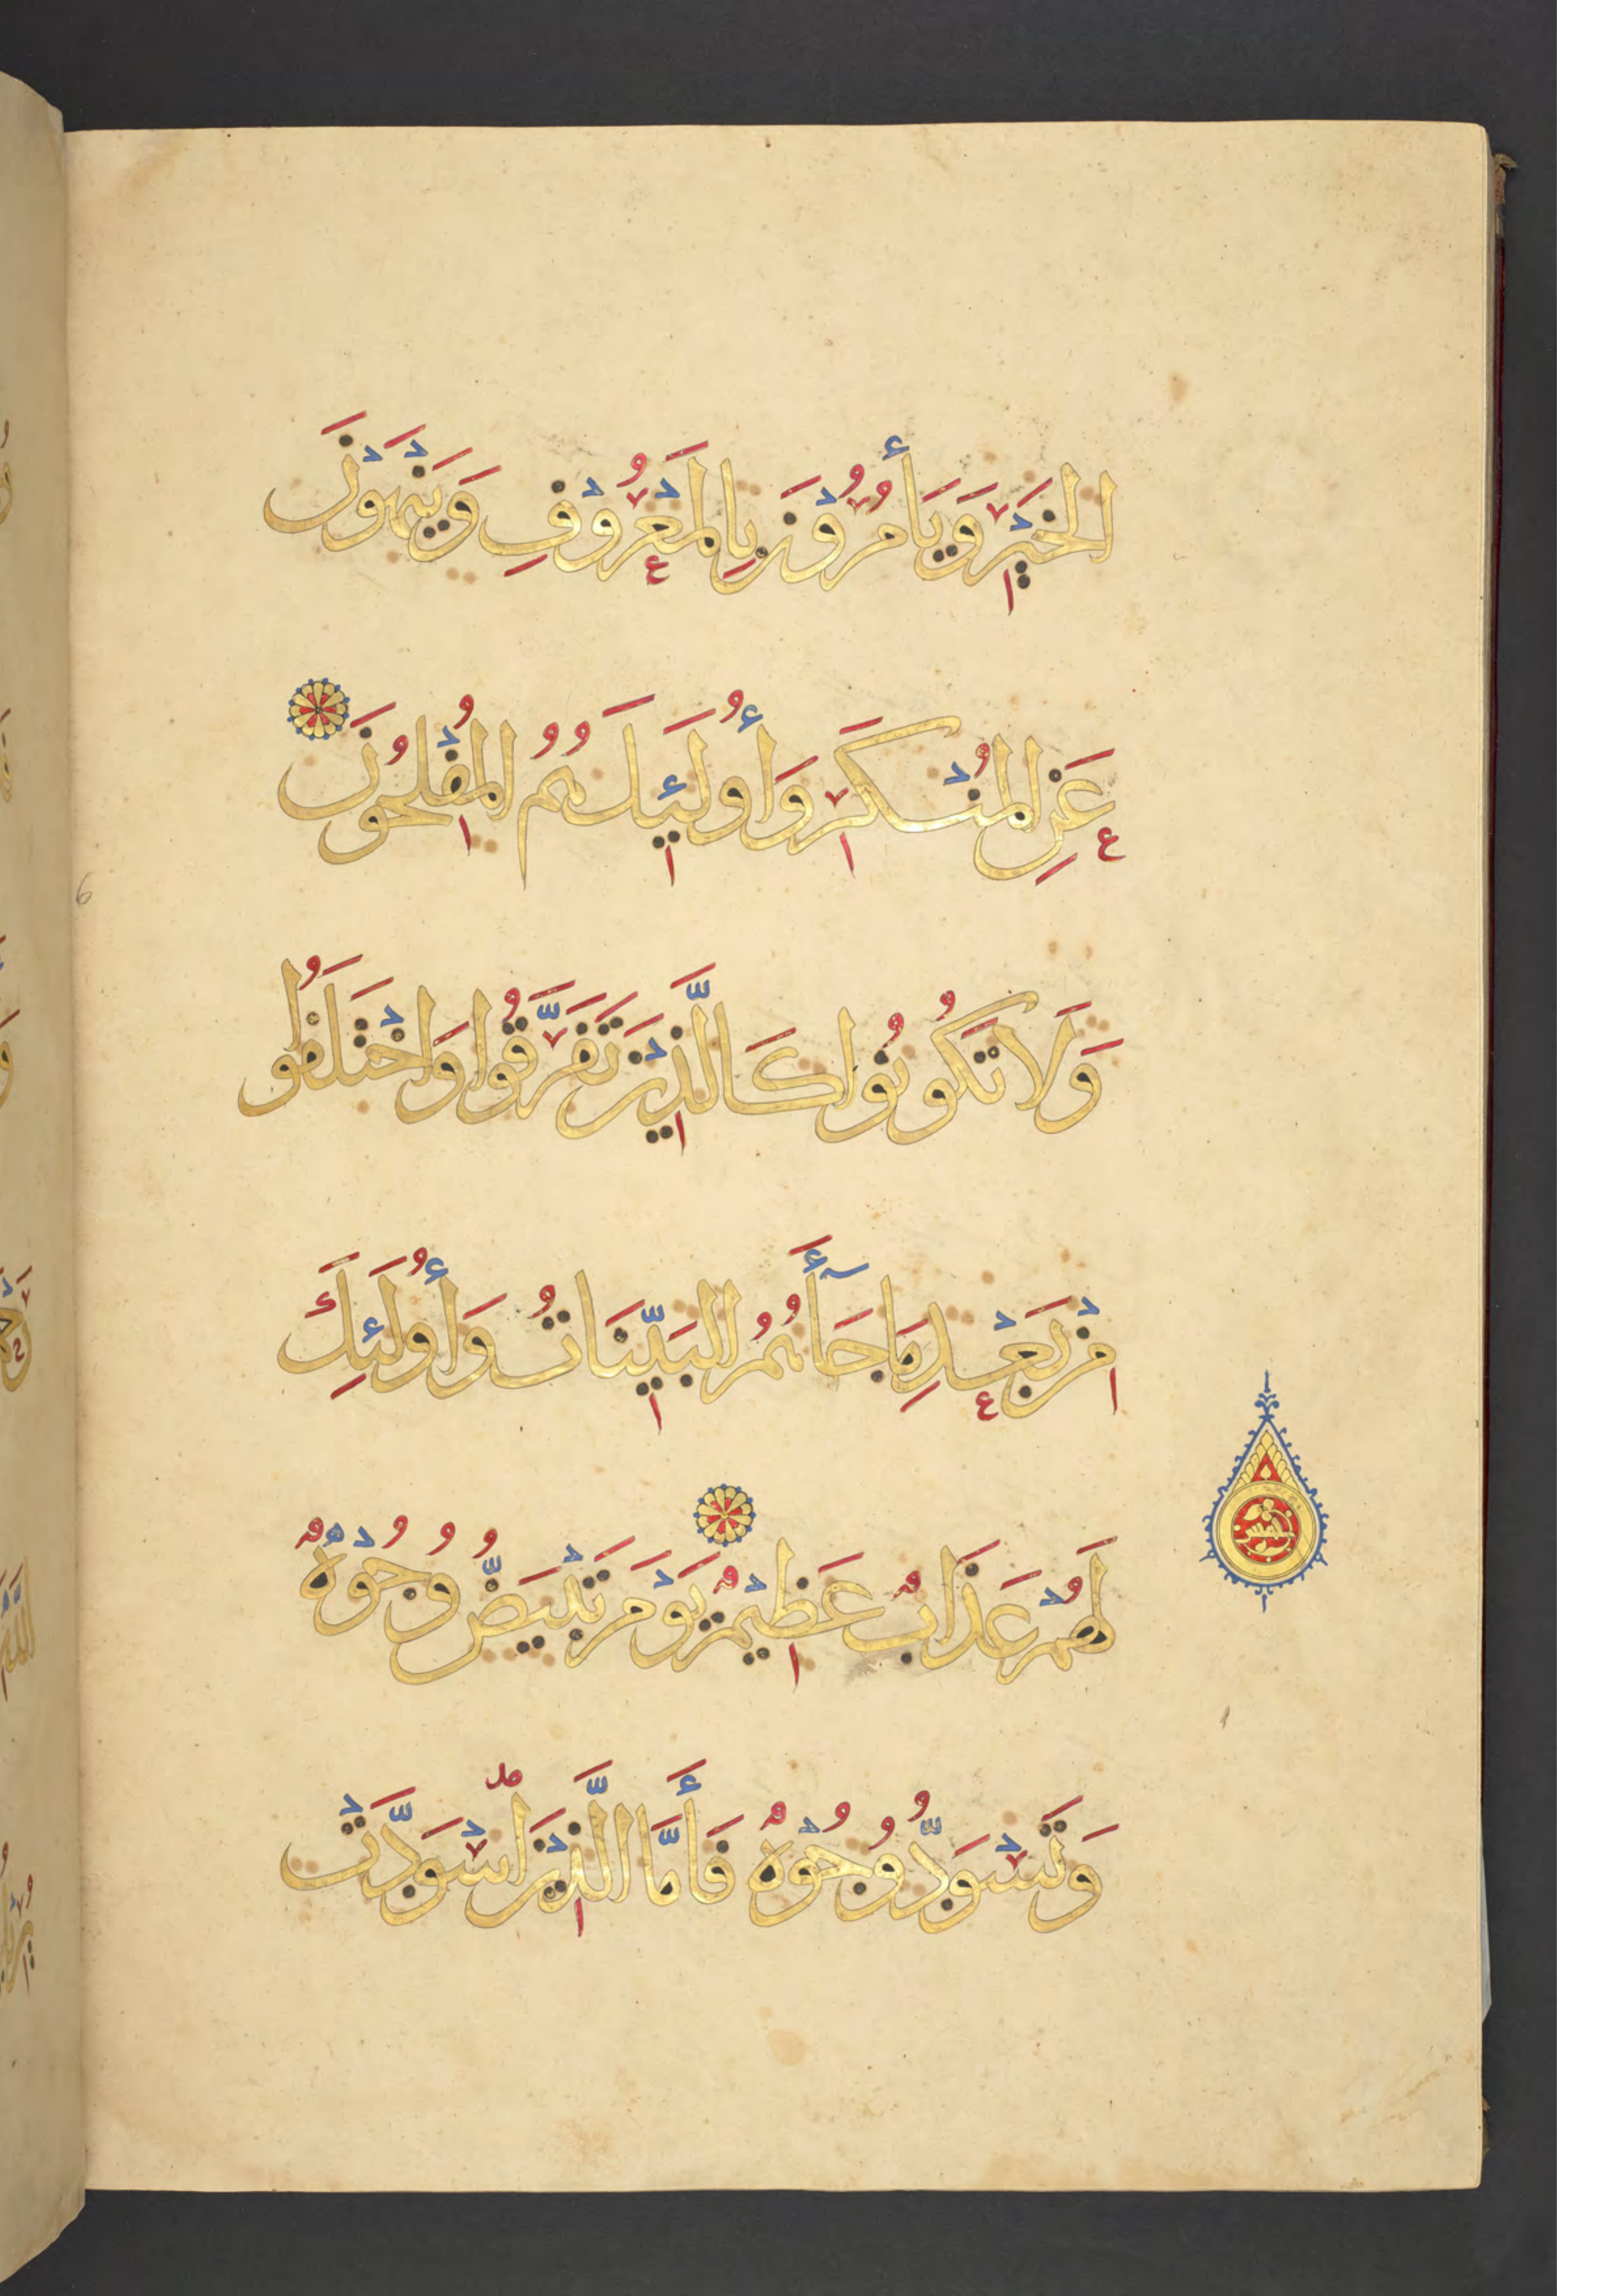 الْخَيْرِ وَيَأْمُرُوْنَ بِالْمَعْرُوْفِ وَيَنْهَوْنَ
عَنِ الْمُنْكَرِ وَأُولَئِكَ هُمُ الْمُفْلِحُونَ
وَلَا تَكُونُوا كَالَّذِيْنَ تَفَرَّقُوا وَاخْتَلَفُوا
مِنْ بَعْدِ مَا جَآءَهُمُ الْبَيِّنَاتُ وَأُولَئِكَ
لَهُمْ عَذَابٌ عَظِيْمٌ يَوْمَ تَبْيَضُّ وُجُوْهٌ
وَتَسْوَدُّ وُجُوْهٌ فَأَمَّا الَّذِيْنَ اسْوَدَّتْ
خمس
6